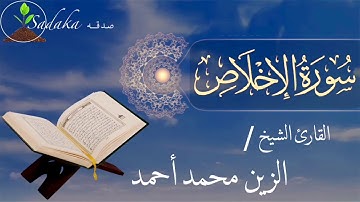 Sadaka صدقه
سُورَةُ الإِخْلَاصِ
القارئ الشيخ /
الزين محمد أحمد